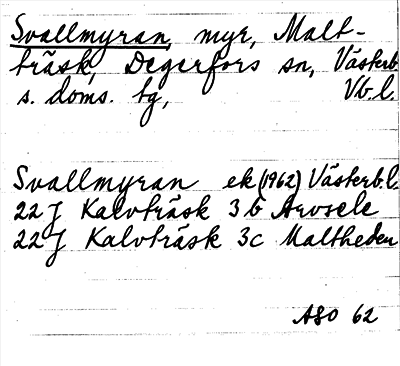 Svallmyran, myr, Malt-
träsk, Degerfors sn, Västerb
s. doms. tg, Vb.l.
Svallmyran ek (1962) Västerb.l.
22 J Kalvträsk 3 b Avosele
22 J Kalvträsk 3c Maltheden
ASO 62